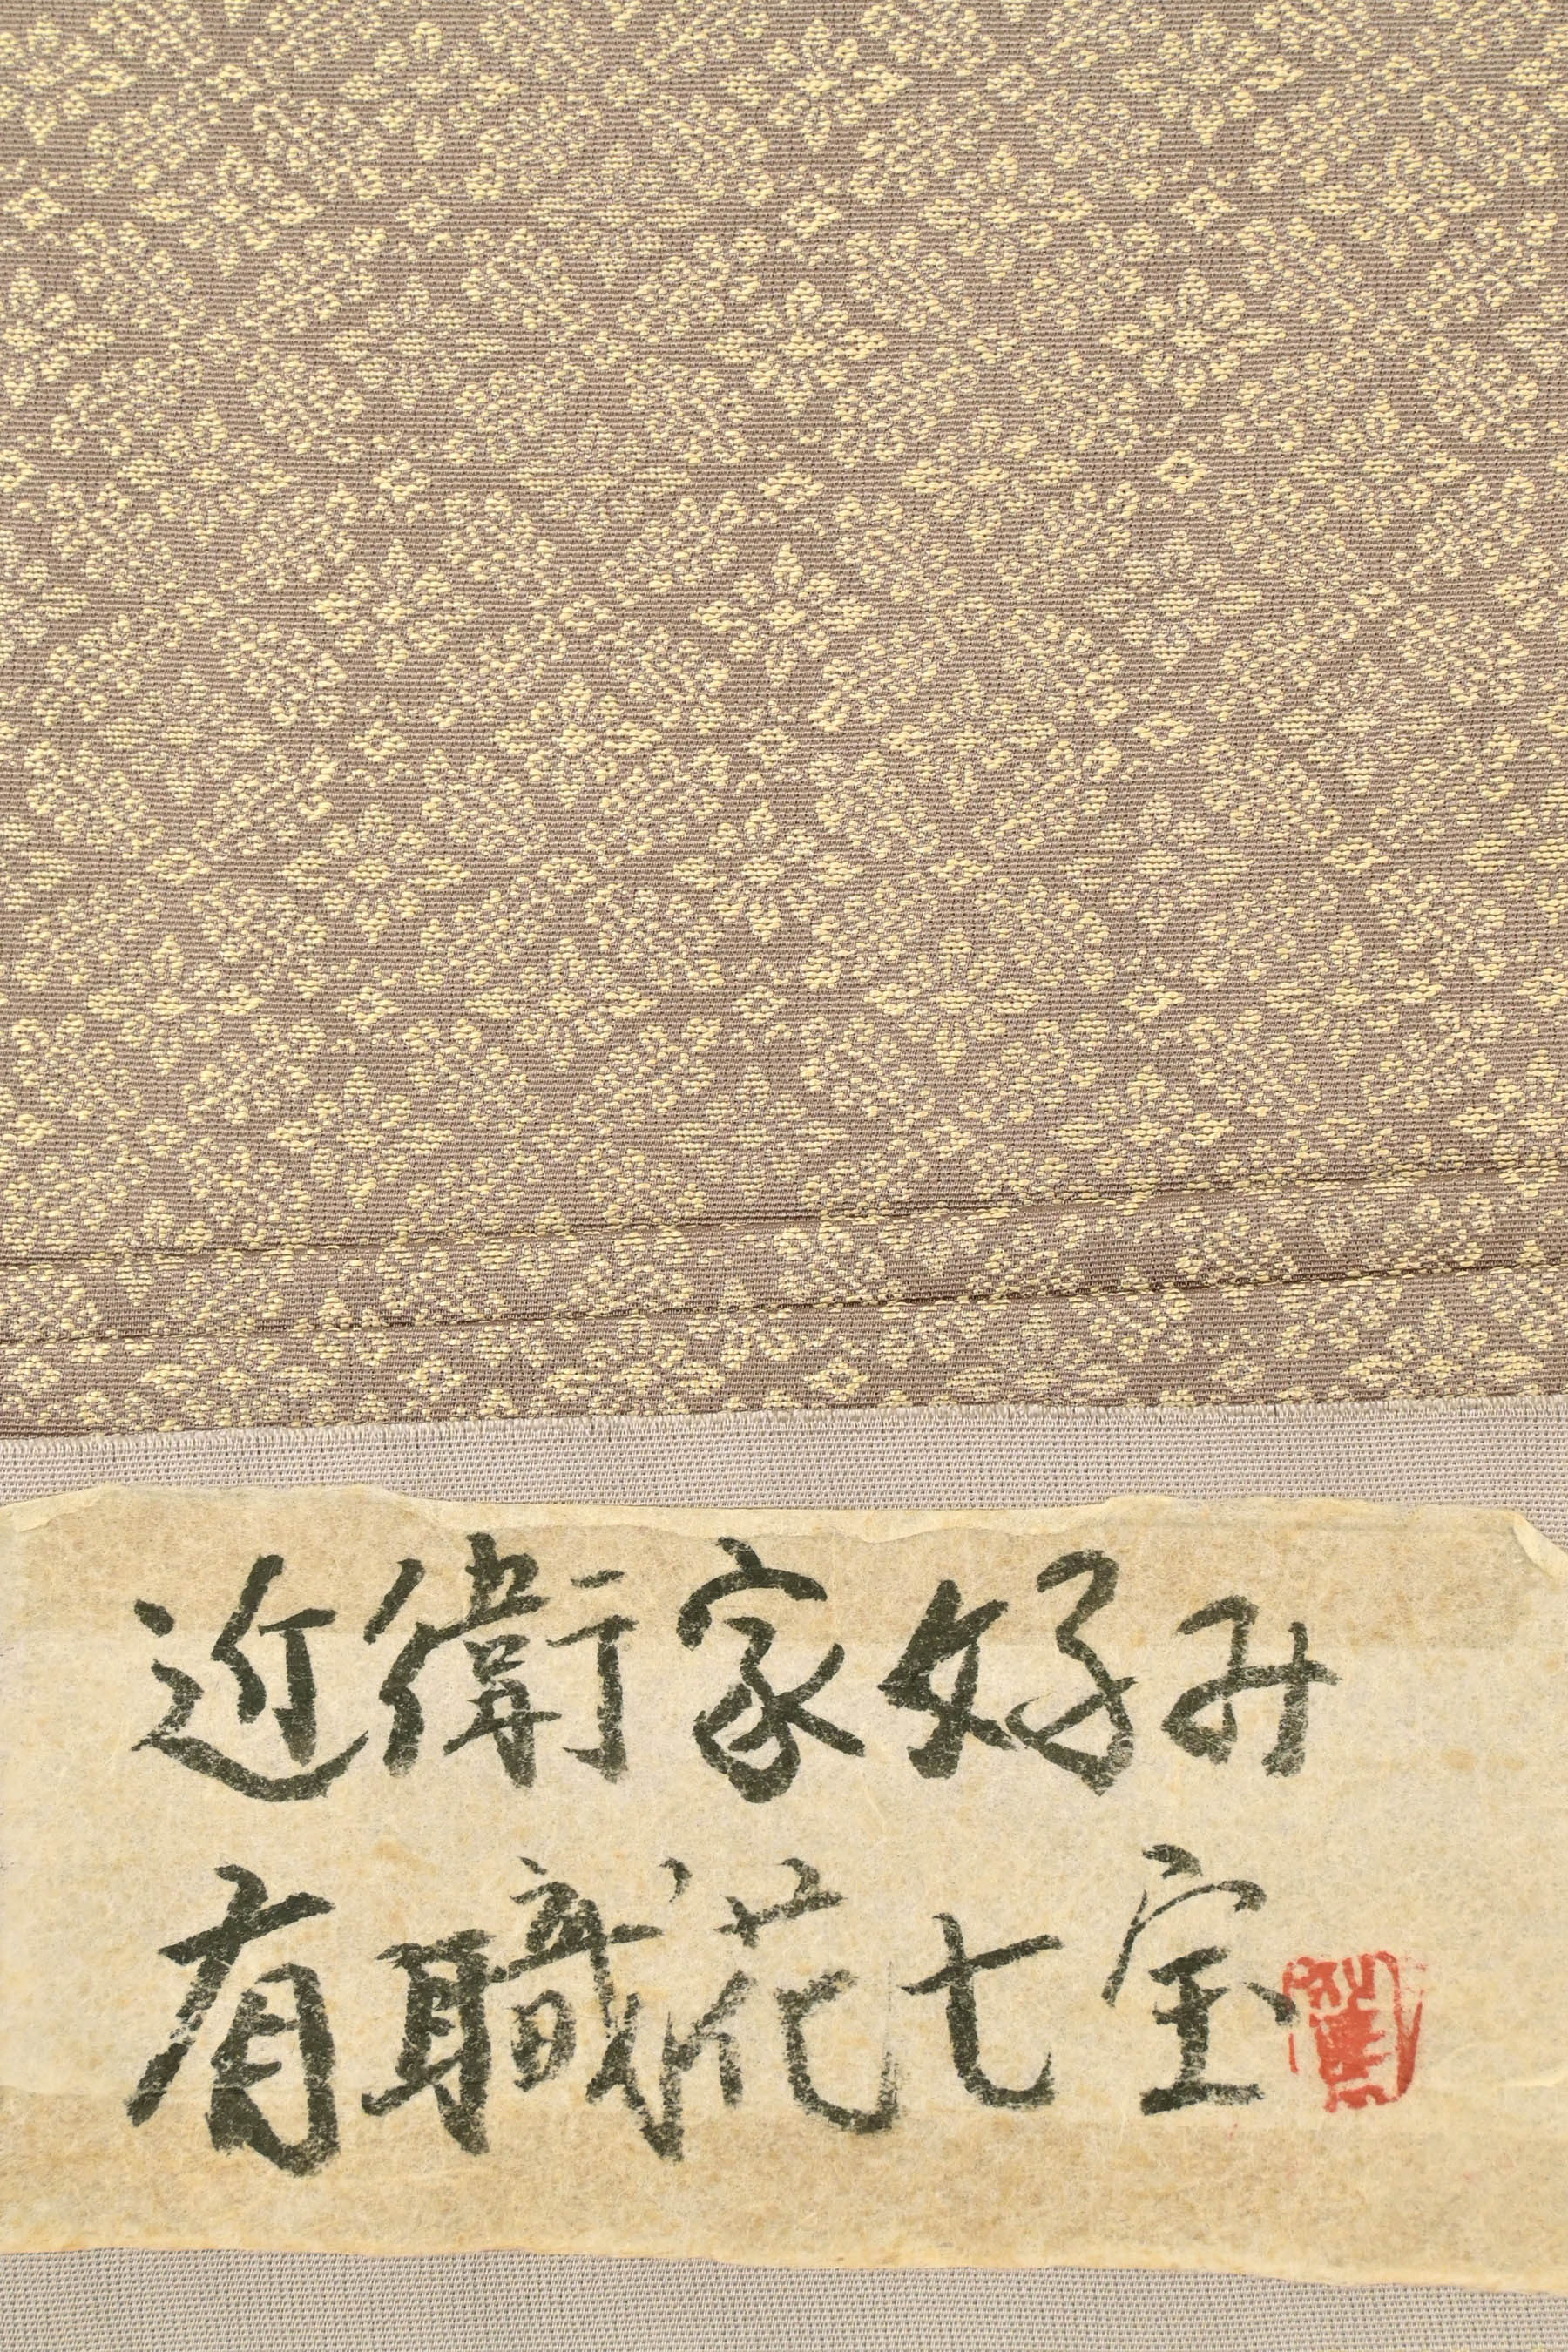 近衛家好み
有職花七宝